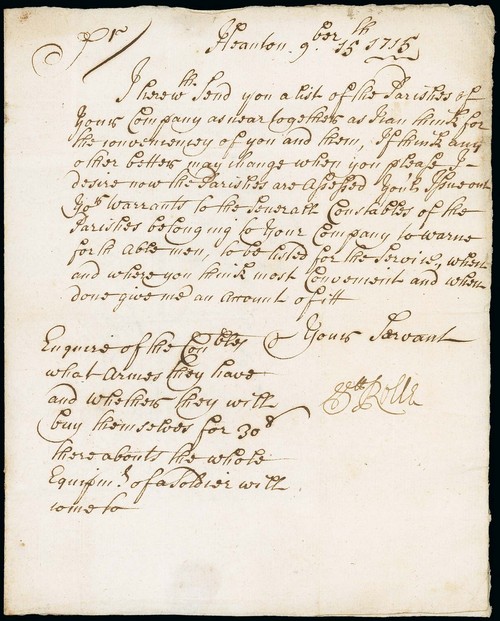 Sr Heanton 9ber 15th 1715
I herewth send you a list of the Parishes of
Your Company as near together as I can think for
the conveniencey of you and them, If think any
other better may change when you please I
desire now the Parishes are Assessed You'l Issue out
Yor warrants to the Generall Constables of the
Parishes belonging to Your Company to warne
forth Able men, to be listed for the Service, when
and where you think most Convenient and when
done give me an account of itt
Yours Servant
Rolle
Enquire of the Conbles
what Armes they have
and whether they will
buy themselves for 30s
thereabouts the whole
Equipmt of a Soldier will
come to